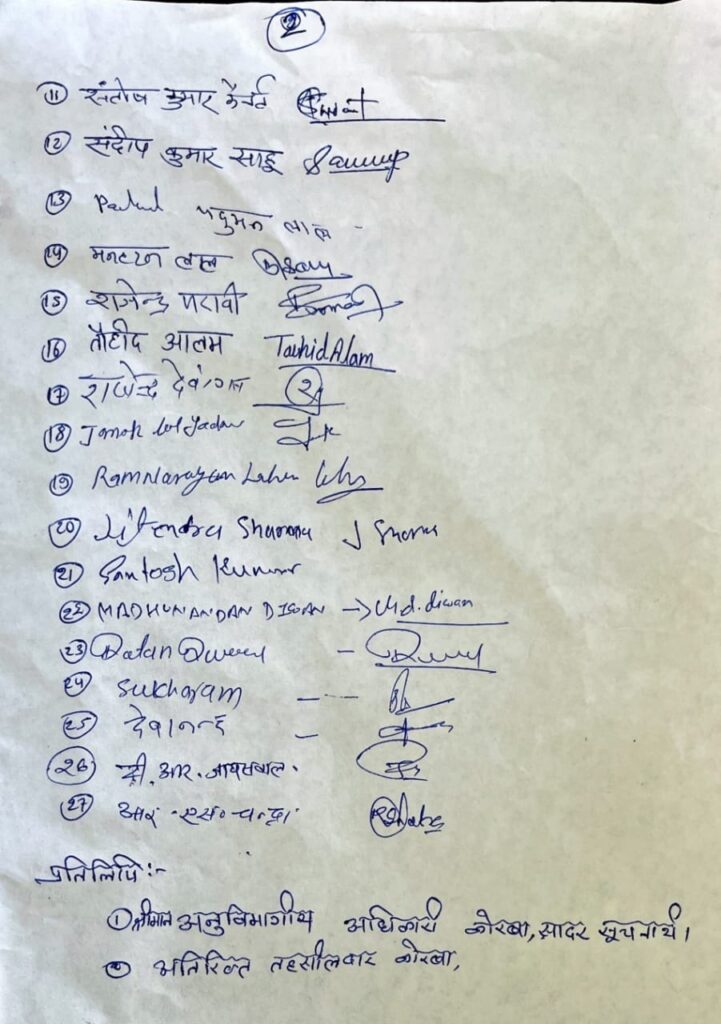 2
11 संतोष कुमार कैवर्त
12 संदीप कुमार साहू
13 पदुमन लाल
14 लाल
15 राजेन्द्र मरावी
16 तौहीद आलम Tauhid Alam
17 राजेन्द्र देवांगन
18 Janak lal Yadav
19 RamNarayan
20 Jitendra Sharma J Sharma
21 Santosh Kumar
22 MADHUNANDAN DIWAN → Md. diwan
23 Ratan
24 Sukharam
25 देवानन्द
26 डी. आर. जायसवाल.
27 आर. एस. चन्द्रा
प्रतिलिपि :-
1 श्रीमान अनुविभागीय अधिकारी कोरबा, सादर सूचनार्थ।
2 अतिरिक्त तहसीलदार कोरबा,